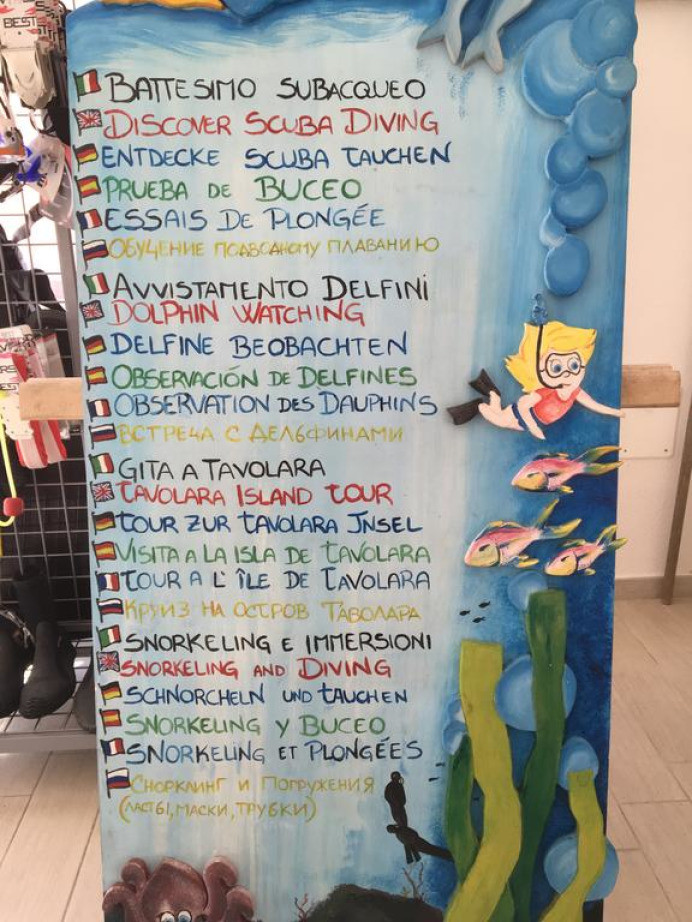 BEST
BATTESIMO SUBACQUEO
DISCOVER SCUBA DIVING
ENTDECKE SCUBA TAUCHEN
PRUEBA DE BUCEO
ESSAIS DE PLONGÉE
ОБУЧЕНИЕ ПОДВОДНОМУ ПЛАВАНИЮ
AVVISTAMENTO DELFINI
DOLPHIN WATCHING
DELFINE BEOBACHTEN
OBSERVACIÓN DE DELFINES
OBSERVATION DES DAUPHINS
ВСТРЕЧА С ДЕЛЬФИНАМИ
GITA A TAVOLARA
TAVOLARA ISLAND TOUR
TOUR ZUR TAVOLARA INSEL
VISITA A LA ISLA DE TAVOLARA
TOUR A L'ÎLE DE TAVOLARA
КРУИЗ НА ОСТРОВ ТАВОЛАРА
SNORKELING E IMMERSIONI
SNORKELING AND DIVING
SCHNORCHELN UND TAUCHEN
SNORKELING Y BUCEO
SNORKELING ET PLONGÉES
СНОРКЛИНГ И ПОГРУЖЕНИЯ
(ЛАСТЫ, МАСКИ, ТРУБКИ)